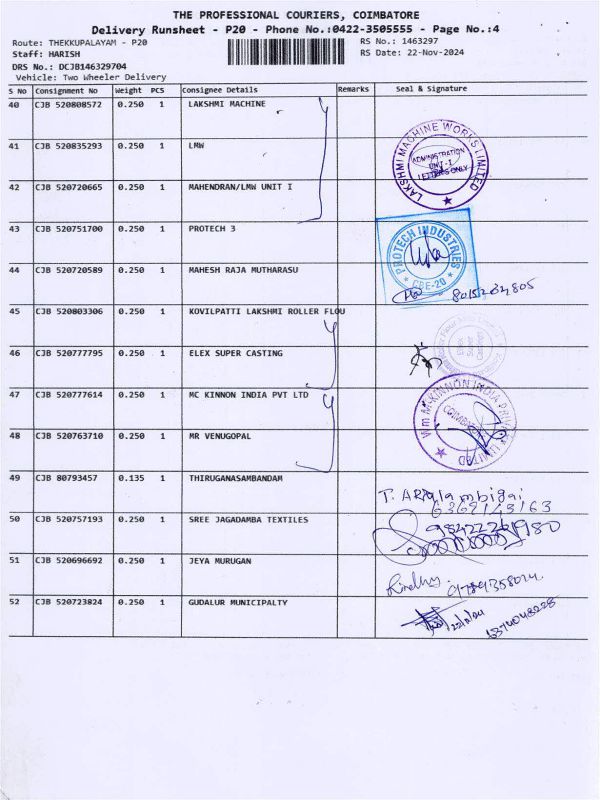 THE PROFESSIONAL COURIERS, COIMBATORE
Delivery Runsheet - P20 - Phone No.:0422-3505555 - Page No.:4
Route: THEKKUPALAYAM - P20 RS No.: 1463297
Staff: HARISH RS Date: 22-Nov-2024
DRS No.: DCJB146329704
Vehicle: Two Wheeler Delivery
S No Consignment No Weight PCS Consignee Details Remarks Seal & Signature
40 CJB 520808572 0.250 1 LAKSHMI MACHINE
41 CJB 520835293 0.250 1 LMW
LAKSHMI MACHINE WORKS LIMITED
ADMINISTRATION
UNIT-I
LETTERS ONLY
42 CJB 520720665 0.250 1 MAHENDRAN/LMW UNIT I
43 CJB 520751700 0.250 1 PROTECH 3
PROTECH INDUSTRIES
CBE-20
44 CJB 520720589 0.250 1 MAHESH RAJA MUTHARASU
45 CJB 520803306 0.250 1 KOVILPATTI LAKSHMI ROLLER FLOU
46 CJB 520777795 0.250 1 ELEX SUPER CASTING
47 CJB 520777614 0.250 1 MC KINNON INDIA PVT LTD
48 CJB 520763710 0.250 1 MR VENUGOPAL
49 CJB 80793457 0.135 1 THIRUGANASAMBANDAM
50 CJB 520757193 0.250 1 SREE JAGADAMBA TEXTILES
51 CJB 520696692 0.250 1 JEYA MURUGAN
52 CJB 520723824 0.250 1 GUDALUR MUNICIPALTY